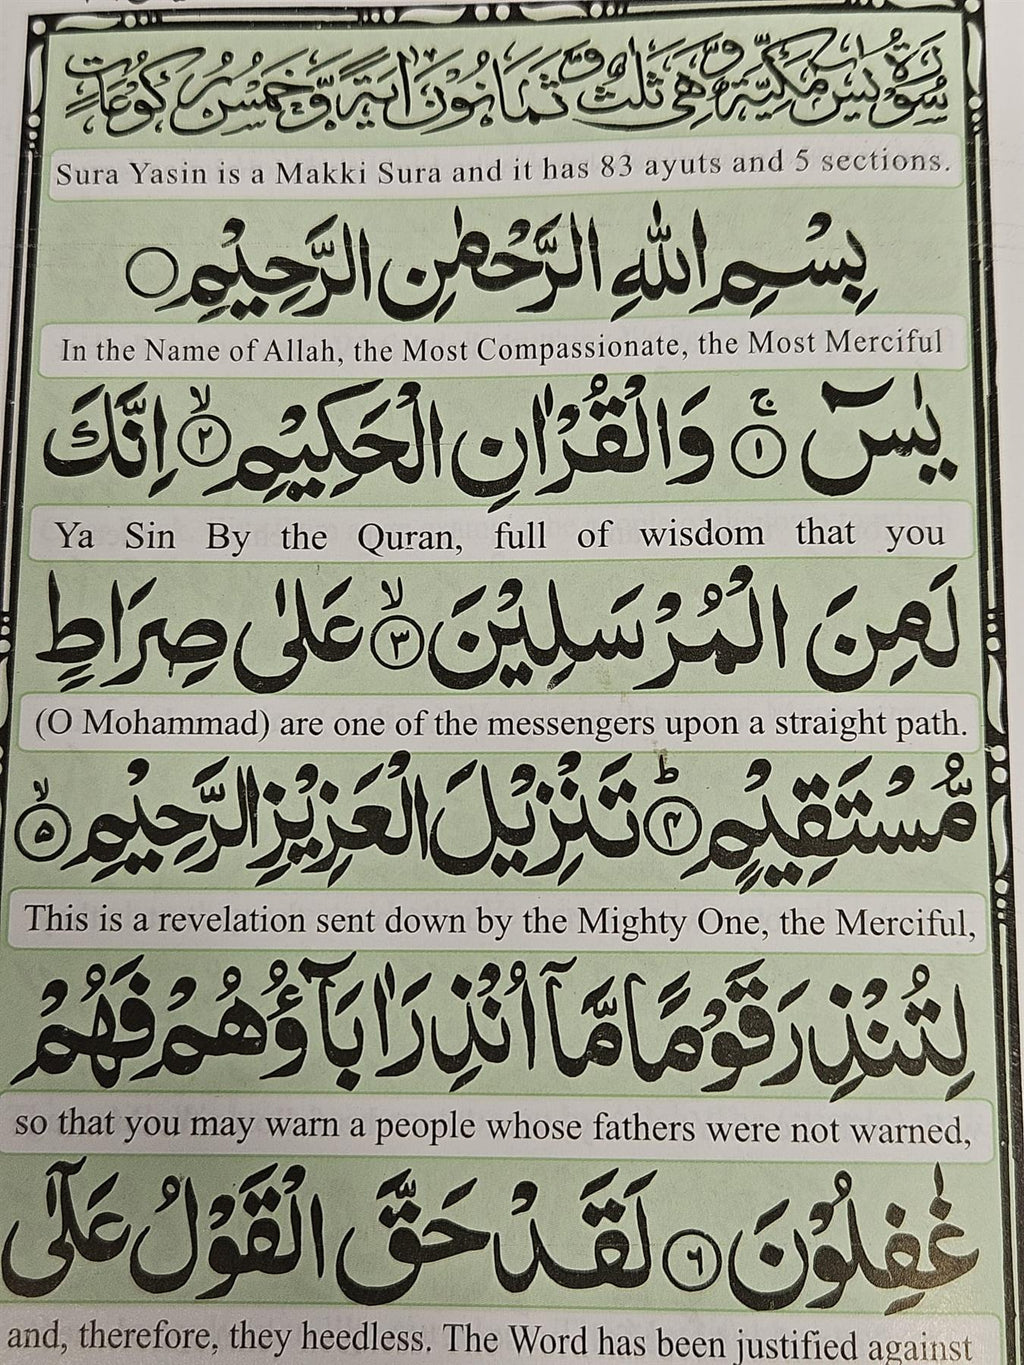 سُوْرَةُ يٰسٓ مَكِّيَّةٌ وَّهِيَ ثَلٰثٌ وَّثَمَانُوْنَ اٰيَةً وَّخَمْسُ رُكُوْعَاتٍ
Sura Yasin is a Makki Sura and it has 83 ayuts and 5 sections.
بِسْمِ اللّٰهِ الرَّحْمٰنِ الرَّحِيْمِ
In the Name of Allah, the Most Compassionate, the Most Merciful
يٰسٓ ۚ ﴿۱﴾ وَالْقُرْاٰنِ الْحَكِيْمِ ۙ ﴿۲﴾ اِنَّكَ
Ya Sin By the Quran, full of wisdom that you
لَمِنَ الْمُرْسَلِيْنَ ۙ ﴿۳﴾ عَلٰى صِرَاطٍ
(O Mohammad) are one of the messengers upon a straight path.
مُّسْتَقِيْمٍ ؕ ﴿۴﴾ تَنْزِيْلَ الْعَزِيْزِ الرَّحِيْمِ ۙ ﴿۵﴾
This is a revelation sent down by the Mighty One, the Merciful,
لِتُنْذِرَ قَوْمًا مَّآ اُنْذِرَ اٰبَآؤُهُمْ فَهُمْ
so that you may warn a people whose fathers were not warned,
غٰفِلُوْنَ ﴿۶﴾ لَقَدْ حَقَّ الْقَوْلُ عَلٰٓى
and, therefore, they heedless. The Word has been justified against